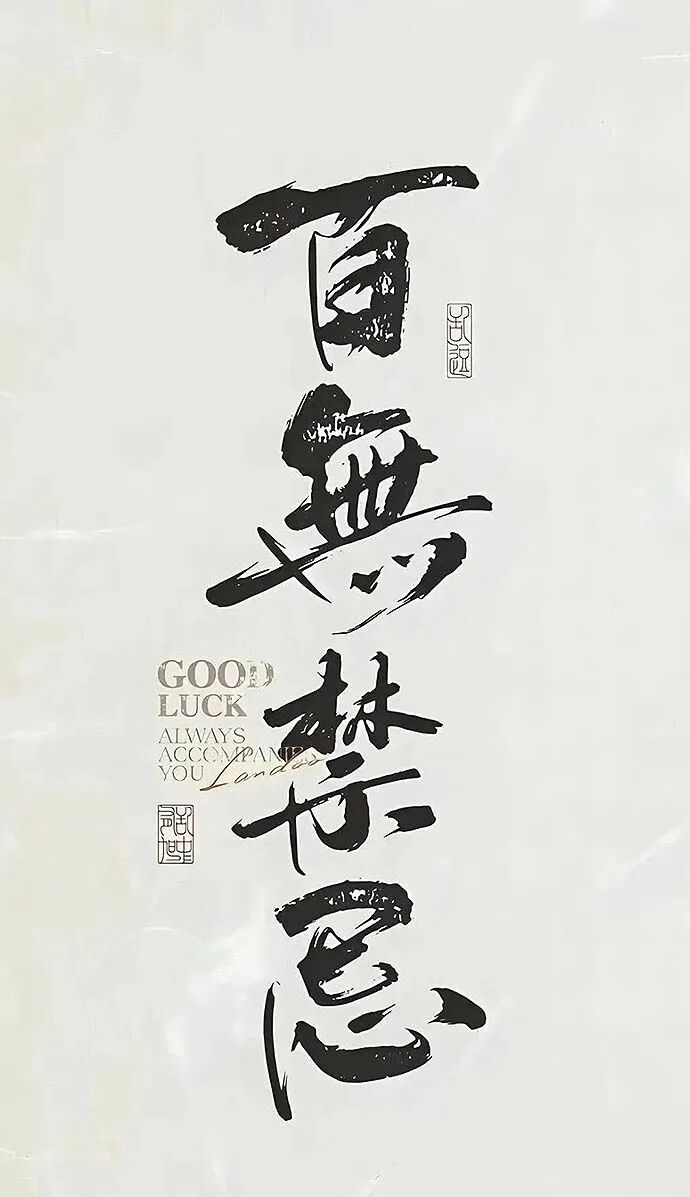 百無禁忌
GOOD
LUCK
ALWAYS
ACCOMPANIES
YOU